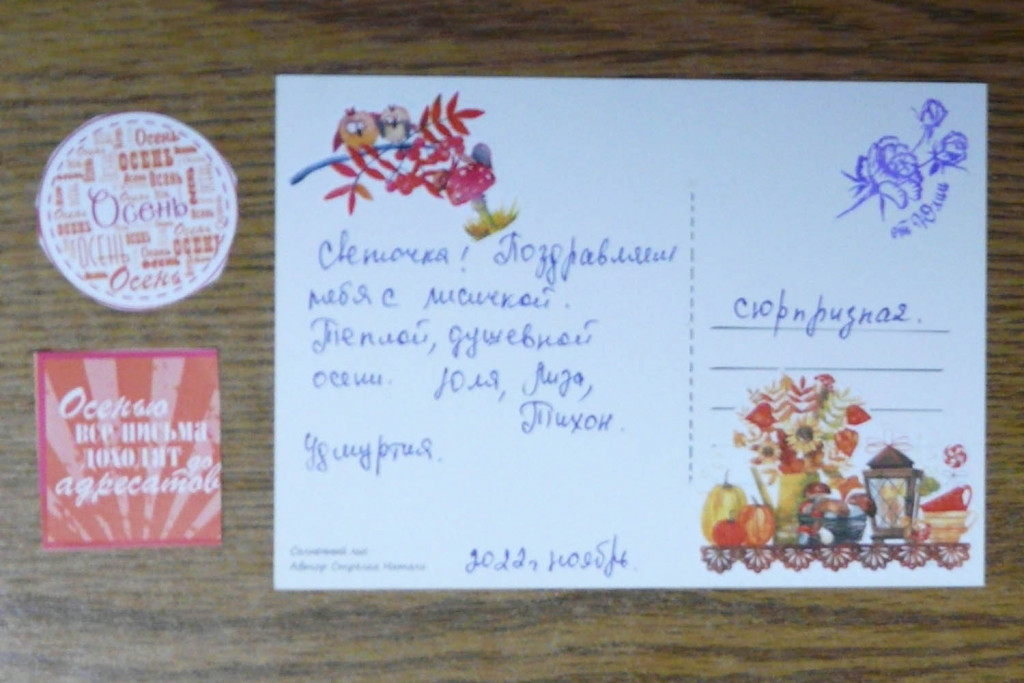 Осень
Осень
ОСЕНЬ
Осень
Осень
ОСЕНЬ
Осень
ОСЕНЬ
Осень
Осенью
все письма
доходят до
адресатов
Светочка! Поздравляем
тебя с лисичкой.
Теплой, душевной
осени. Юля, Лиза,
Тихон.
Удмуртия.
2022г ноябрь.
Солнечный лис
Автор Стрелка Натали
от Юлии
сюрпризная.